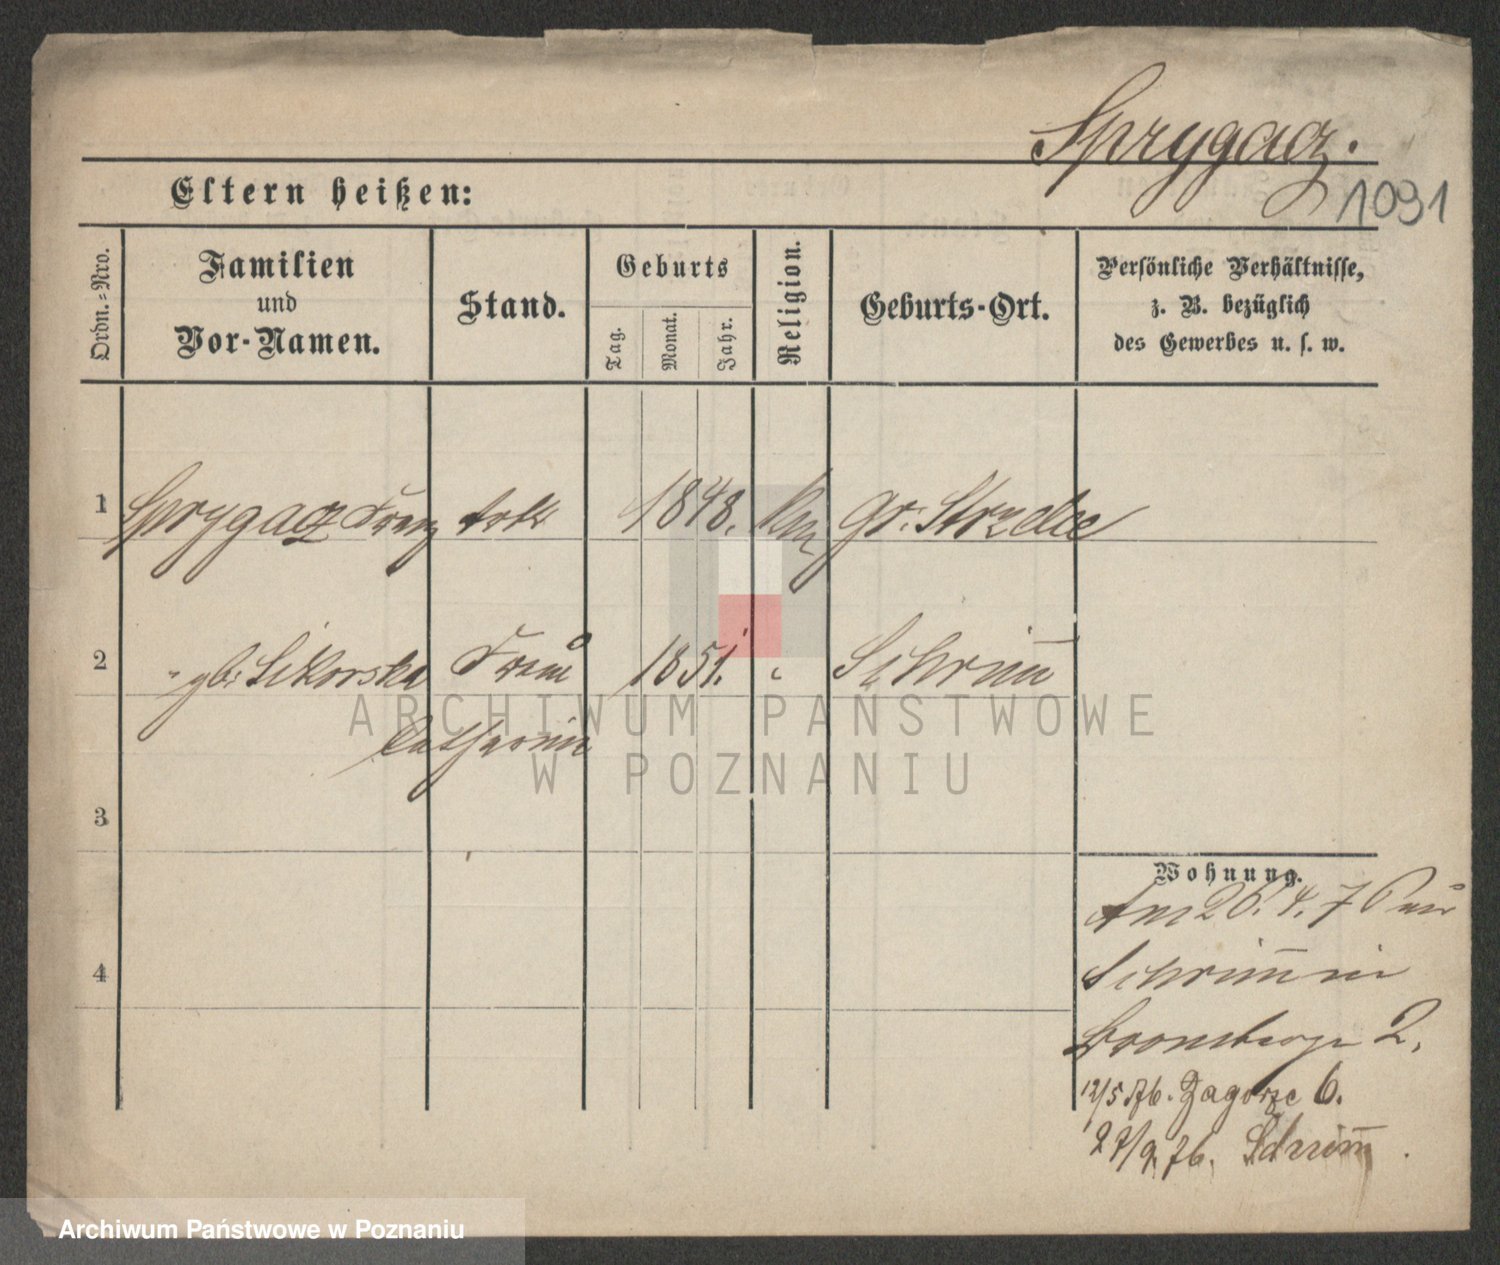 Sprygacz.
1091
Eltern heißen:
Ordn.=Nro.
Familien
und
Vor-Namen.
Stand.
Geburts
Tag.
Monat.
Jahr.
Religion.
Geburts-Ort.
Persönliche Verhältnisse,
z. B. bezüglich
des Gewerbes u. s. w.
1 Sprygacz Franz 1848. Gr. Strzelce
2 " gb. Sikorska Frau 1851. " Schrim̅
Catharina
3
4
Wohnung.
Am 26. 4. 76 aus
Schrim̅ in
Bromberger 2.
12/5 76. Zagorze 6.
27/9. 76. Schrim̅.
ARCHIWUM PAŃSTWOWE
W POZNANIU
Archiwum Państwowe w Poznaniu